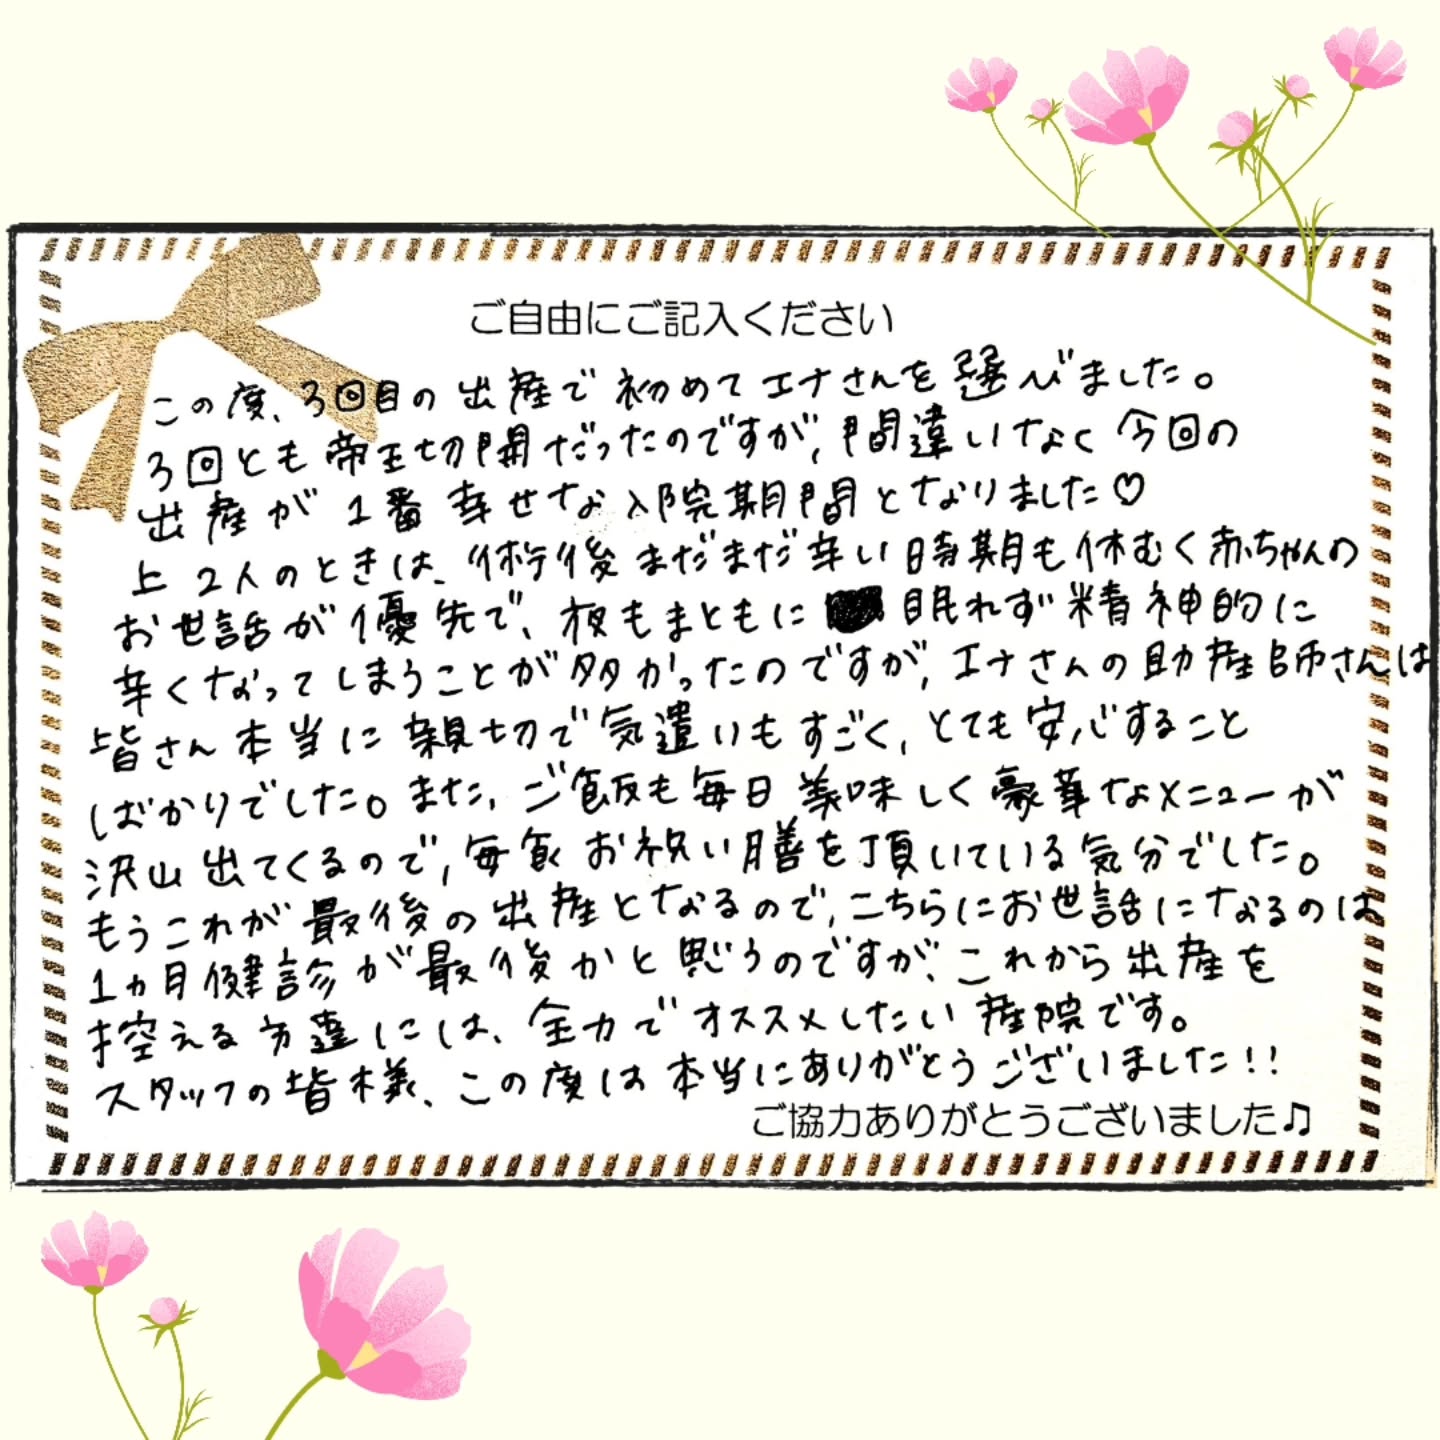 ご自由にご記入ください
この度、3回目の出産で初めてエナさんを選びました。
3回とも帝王切開だったのですが、間違いなく今回の
出産が1番幸せな入院期間となりました♡
上2人のときは、術後まだまだ辛い時期も休むく赤ちゃんの
お世話が優先で、夜もまともに眠れず精神的に
辛くなってしまうことが多かったのですが、エナさんの助産師さんは
皆さん本当に親切で気遣いもすごく、とても安心すること
ばかりでした。また、ご飯も毎日美味しく豪華なメニューが
沢山出てくるので、毎食お祝い膳を頂いている気分でした。
もうこれが最後の出産となるので、こちらにお世話になるのは
1ヵ月健診が最後かと思うのですが、これから出産を
控える方達には、全力でオススメしたい産院です。
スタッフの皆様、この度は本当にありがとうございました!!
ご協力ありがとうございました♫